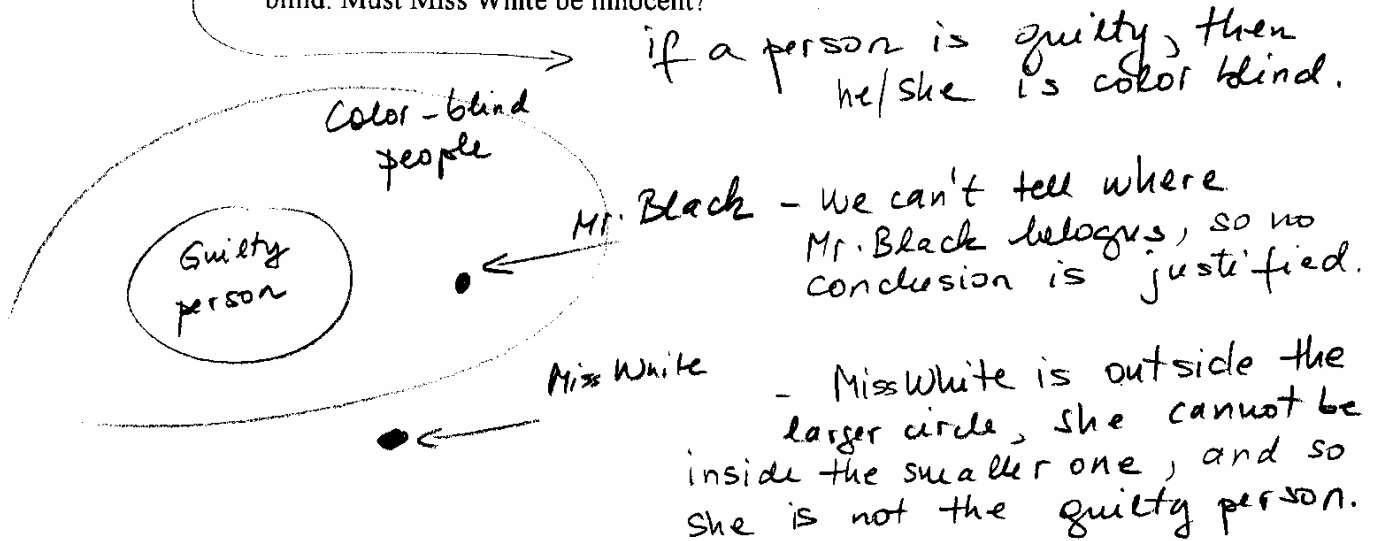 blind. Must Miss White be innocent?
if a person is guilty, then
he/she is color blind.
Color-blind
people
Guilty
person
Mr. Black - We can't tell where
Mr. Black belogns, so no
conclusion is justified.
Miss White - Miss White is outside the
larger circle, she cannot be
inside the smaller one, and so
she is not the guilty person.